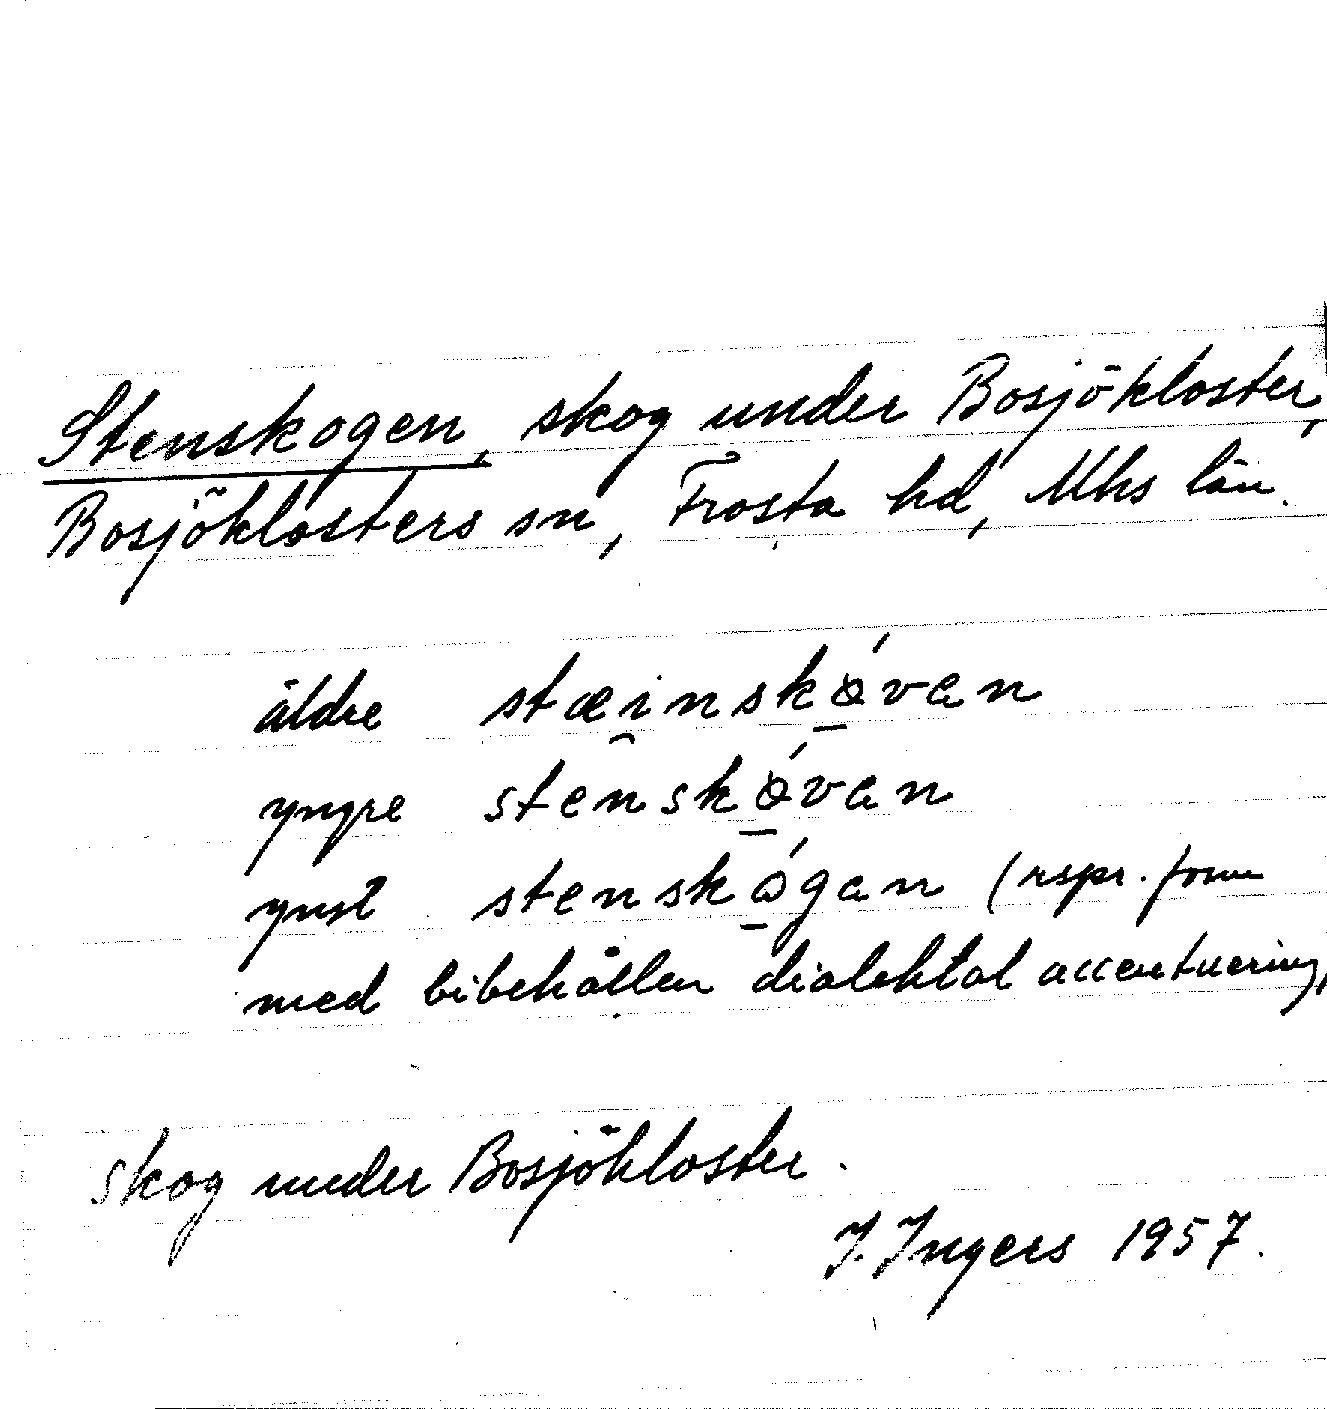 Stenskogen, skog under Bosjökloster,
Bosjöklosters sn, Frosta hd, Mhs län.
äldre stæi̯nskǿ̱van
yngre stenskǿ̱van
ynst stenskó̱gan (rspr. form
med bibehållen dialektal accentuering)
skog under Bosjökloster.
I. Ingers 1957.